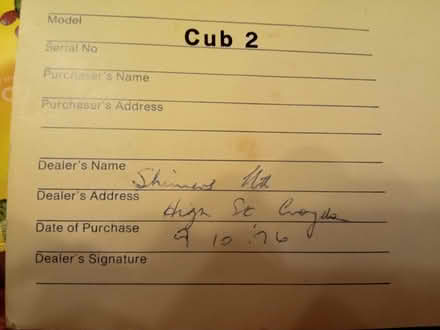 Model
Cub 2
Serial No
Purchaser's Name
Purchaser's Address
Dealer's Name
Dealer's Address High St Croydon
Date of Purchase 9 10 '76
Dealer's Signature